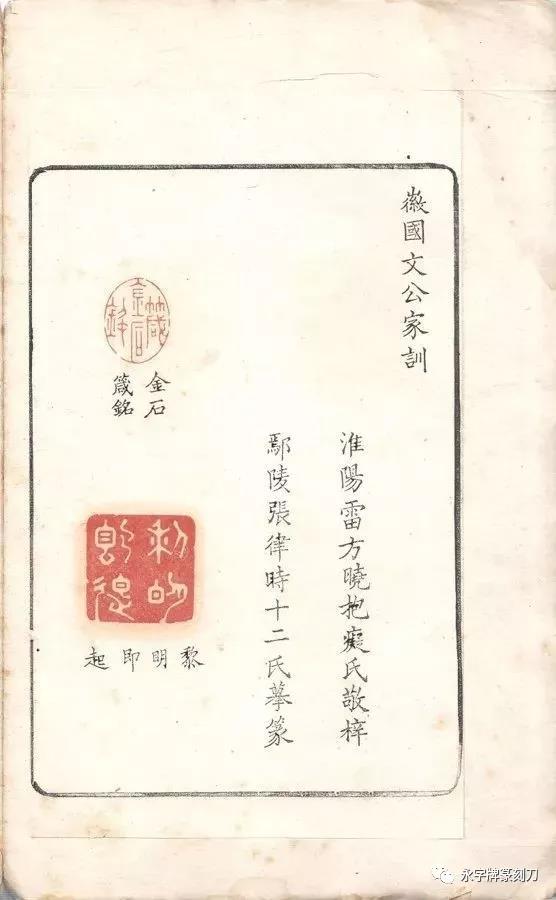 徽國文公家訓
淮陽雷方曉抱癡氏敬梓
鄢陵張律時十二氏摹篆
金石箴銘
金石
箴銘
黎明即起
黎明即起
永字牌篆刻刀